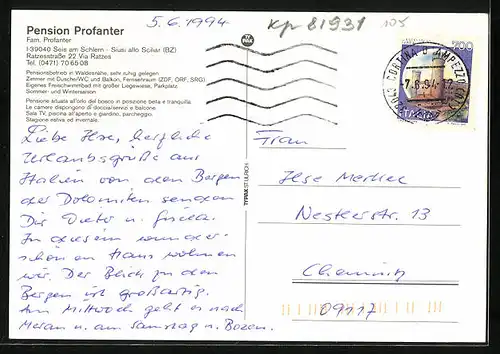 Pension Profanter
Fam. Profanter
I-39040 Seis am Schlern - Siusi allo Sciliar (BZ)
Ratzesstraße 22 Via Ratzes
Tel. (0471) 70 65 08
Pensionsbetrieb in Waldesnähe, sehr ruhig gelegen.
Zimmer mit Dusche/WC und Balkon, Fernsehraum (ZDF, ORF, SRG)
Eigenes Freischwimmbad mit großer Liegewiese, Parkplatz.
Sommer- und Wintersaison
Pensione situata all'orlo del bosco in posizione bella e tranquilla.
Le camere dispongono di doccia/servizi e balcone.
Sala TV, piscina all'aperto e giardino, parcheggio.
Stagione estiva ed invernale.
5.6.1994
kp 81931
105
700
CORTINA D'AMPEZZO
7.6.94-12
TYPAK ST. ULRICH
Liebe Ilse, herzliche
Urlaubsgrüße aus
Italien von den Bergen
der Dolomiten senden
Dir Dieter u. Gisela.
In diesem wunder-
schönen Haus wohnen
wir. Der Blick zu den
Bergen ist großartig.
Am Mittwoch geht es nach
Meran u. am Samstag n. Bozen.
Frau
Ilse Merkel
Neskerstr. 13
Chemnitz
09117